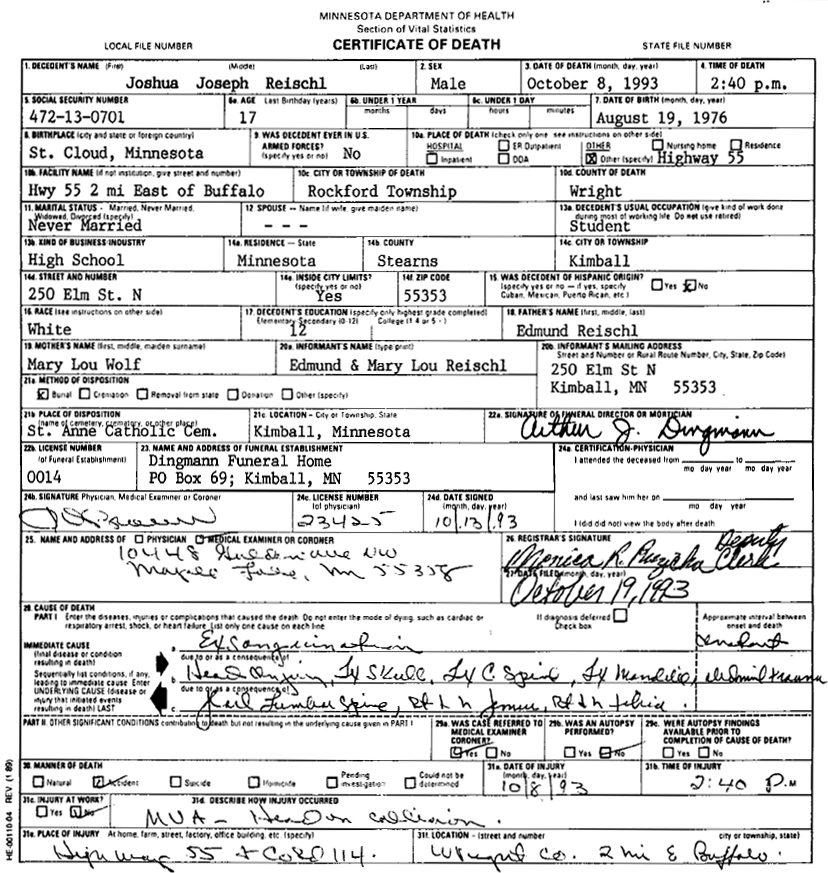 MINNESOTA DEPARTMENT OF HEALTH
Section of Vital Statistics
LOCAL FILE NUMBER CERTIFICATE OF DEATH STATE FILE NUMBER
1. DECEDENT'S NAME (First) (Middle) (Last) 2. SEX 3. DATE OF DEATH (month, day, year) 4. TIME OF DEATH
Joshua Joseph Reischl Male October 8, 1993 2:40 p.m.
5. SOCIAL SECURITY NUMBER 6a. AGE Last Birthday (years) 6b. UNDER 1 YEAR 6c. UNDER 1 DAY 7. DATE OF BIRTH (month, day, year)
472-13-0701 17 months days hours minutes August 19, 1976
8. BIRTHPLACE (city and state or foreign country) 9. WAS DECEDENT EVER IN U.S. 10a. PLACE OF DEATH (check only one see instructions on other side)
ARMED FORCES? HOSPITAL ER Outpatient OTHER Nursing home Residence
St. Cloud, Minnesota (specify yes or no) No Inpatient DOA Other (specify) Highway 55
10b. FACILITY NAME (if not institution, give street and number) 10c. CITY OR TOWNSHIP OF DEATH 10d. COUNTY OF DEATH
Hwy 55 2 mi East of Buffalo Rockford Township Wright
11. MARITAL STATUS - Married, Never Married, 12 SPOUSE - Name (if wife, give maiden name) 13a. DECEDENT'S USUAL OCCUPATION (give kind of work done
Widowed, Divorced (specify) during most of working life. Do not use retired)
Never Married - - - Student
13b. KIND OF BUSINESS/INDUSTRY 14a. RESIDENCE - State 14b. COUNTY 14c. CITY OR TOWNSHIP
High School Minnesota Stearns Kimball
14d. STREET AND NUMBER 14e. INSIDE CITY LIMITS? 14f. ZIP CODE 15. WAS DECEDENT OF HISPANIC ORIGIN?
(specify yes or no) (specify yes or no - if yes, specify Yes No
250 Elm St. N Yes 55353 Cuban, Mexican, Puerto Rican, etc.)
16. RACE (see instructions on other side) 17. DECEDENT'S EDUCATION (specify only highest grade completed) 18. FATHER'S NAME (first, middle, last)
Elementary Secondary (0-12) College (1 4 or 5 +)
White 12 Edmund Reischl
19. MOTHER'S NAME (first, middle, maiden surname) 20a. INFORMANT'S NAME (type print) 20b. INFORMANT'S MAILING ADDRESS
Street and Number or Rural Route Number, City, State, Zip Code)
Mary Lou Wolf Edmund & Mary Lou Reischl 250 Elm St N
21a. METHOD OF DISPOSITION Kimball, MN 55353
Burial Cremation Removal from state Donation Other (specify)
21b PLACE OF DISPOSITION 21c LOCATION - City or Township, State 22a. SIGNATURE OF FUNERAL DIRECTOR OR MORTICIAN
(name of cemetery, crematory, or other place)
St. Anne Catholic Cem. Kimball, Minnesota Arthur J. Dingmann
22b. LICENSE NUMBER 23. NAME AND ADDRESS OF FUNERAL ESTABLISHMENT 24a. CERTIFICATION-PHYSICIAN
(of Funeral Establishment) Dingmann Funeral Home I attended the deceased from to
0014 PO Box 69; Kimball, MN 55353 mo day year mo day year
24b. SIGNATURE Physician, Medical Examiner or Coroner 24c. LICENSE NUMBER 24d DATE SIGNED and last saw him her on
(of physician) (month, day, year) mo day year
23425 10/13/93 I (did did not) view the body after death
25. NAME AND ADDRESS OF PHYSICIAN MEDICAL EXAMINER OR CORONER 26. REGISTRAR'S SIGNATURE Deputy
10448 Monica R. Clerk
Maple MN 55358 27 DATE FILED (month, day, year)
October 19, 1993
28. CAUSE OF DEATH
PART I Enter the diseases, injuries or complications that caused the death. Do not enter the mode of dying, such as cardiac or If diagnosis deferred Approximate interval between
respiratory arrest, shock, or heart failure. List only one cause on each line Check box onset and death
IMMEDIATE CAUSE a. Exsanguination
(final disease or condition due to or as a consequence of
resulting in death) Head Injury, Fx Skull, Fx C Spine, Fx Mandible,
Sequentially list conditions, if any, b
leading to immediate cause. Enter due to or as a consequence of
UNDERLYING CAUSE (disease or
injury that initiated events Lumbar Spine, Rt & Lt femur, Rt & Lt tibia
resulting in death) LAST c
PART II. OTHER SIGNIFICANT CONDITIONS contributing to death but not resulting in the underlying cause given in PART I 29a. WAS CASE REFERRED TO 29b. WAS AN AUTOPSY 29c. WERE AUTOPSY FINDINGS
MEDICAL EXAMINER PERFORMED? AVAILABLE PRIOR TO
CORONER? COMPLETION OF CAUSE OF DEATH?
Yes No Yes No Yes No
30. MANNER OF DEATH 31a. DATE OF INJURY 31b. TIME OF INJURY
Natural Accident Suicide Homicide Pending investigation Could not be determined (month, day, year)
10/8/93 2:40 P.M
31c. INJURY AT WORK? 31d. DESCRIBE HOW INJURY OCCURRED
Yes No MVA - Head on collision.
31e. PLACE OF INJURY At home, farm, street, factory, office building, etc (specify) 31f. LOCATION - (street and number city or township, state)
Highway 55 + Co Rd 114. Wright Co. 2 mi E Buffalo.
HE-00110-04 REV (1 89)